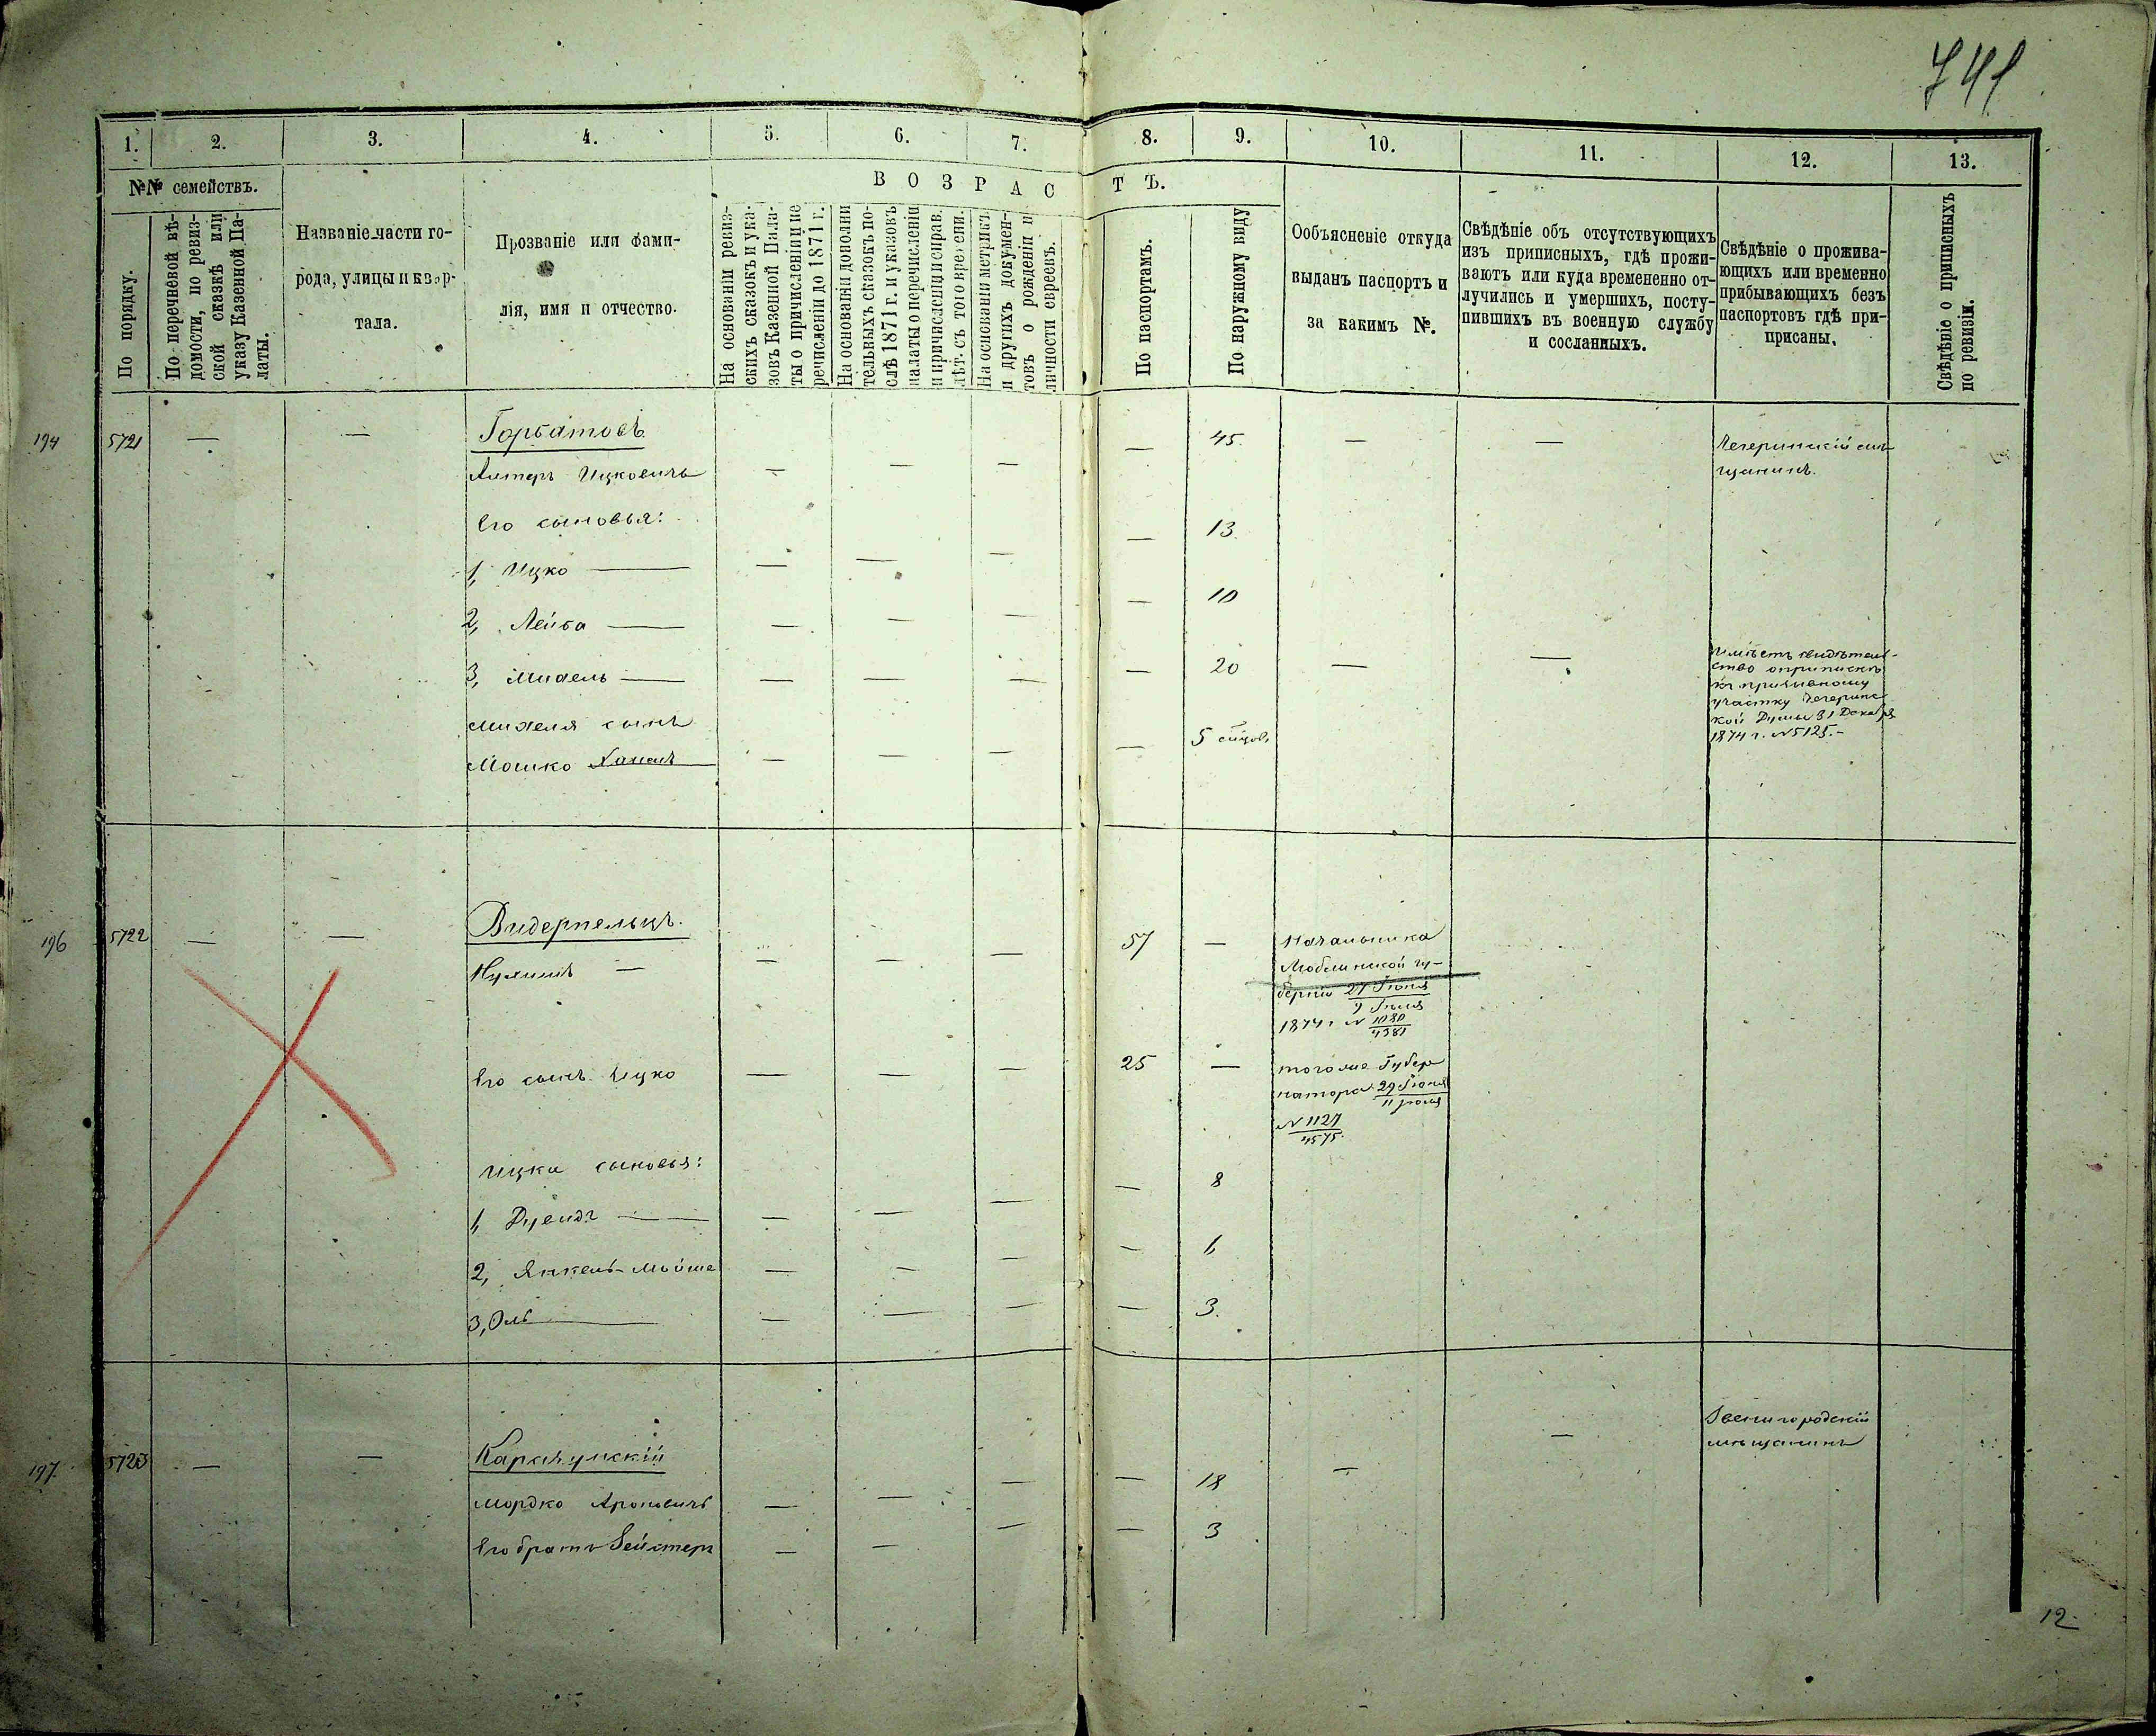 741
1. 2. 3. 4. 5. 6. 7. 8. 9. 10. 11. 12. 13.
№№ семействъ.
По порядку.
По перечневой вѣ-
домости, по ревиз-
ской сказкѣ или
указу Казенной Па-
латы.
Названіе части го-
рода, улицы и квар-
тала.
Прозваніе или фами-
лія, имя и отчество.
ВОЗРАСТЪ.
На основаніи ревиз-
скихъ сказокъ и ука-
зовъ Казенной Пала-
ты о причисленіи и пе
речисленіи до 1871 г.
На основаніи дополни
тельныхъ сказокъ по-
слѣ 1871 г. и указовъ
палаты о перечисленіи
и причисленіи исправ.
лѣт. съ того времени.
На основаніи метрикъ
и другихъ докумен-
товъ о рожденіи и
личности евреевъ.
По паспортамъ.
По наружному виду
Ообъясненіе откуда
выданъ паспортъ и
за какимъ №.
Свѣдѣніе объ отсутствующихъ
изъ приписныхъ, гдѣ прожи-
ваютъ или куда временено от-
лучились и умершихъ, посту-
пившихъ въ военную службу
и сосланныхъ.
Свѣдѣніе о прожива-
ющихъ или временно
прибывающихъ безъ
паспортовъ гдѣ при-
присаны.
Свѣдѣніе о приписныхъ
по ревизіи.
194 5721 — — Горбатовъ — 45. — — Чегеринскій мѣ-
щанинъ.
Алтеръ Ицковичъ — — —
Его сыновья:
1, Ицко — — — — — 13.
2, Лейба — — — — — 10
3, Михель — — — — — 20 — —
Имѣетъ свидѣтель-
ство о припискѣ
къ призывному
участку Чегеринс
кой Думы 31 Декабря
1874 г. № 5125.-
Михеля сынъ
Мошко — — — — 5
196 5722 — — Видерпельцъ.
Нухимъ — — — — 57 —
Начальника
Люблинской гу-
берніи 27 Іюня
9 Іюля
1874 г. № 1080
4381
Его сынъ Ицко — — — 25 —
того же Губер
натора 29 Іюня
11 Іюля
№ 1127
4575.
Ицка сыновья:
1, — — — — — 8
2, Янкель-Мойше — — — — 6
3, — — — — — 3.
197. 5723 — — — — Звенигородскій
мѣщанинъ
Мордко Ароновичъ — — — — 18
Его братъ Зейстеръ — — — — 3
12